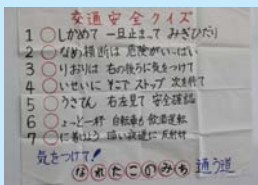 交通安全クイズ
1 ○しかめて 一旦止まって みぎひだり
2 ○なめ横断は 危険がいっぱい
3 ○りおりは 右の後ろに気をつけて
4 ○いせいに そこで ストップ 次を待て
5 ○うさてん 右左見て 安全確認
6 ○ょっと一杯 自転車も 飲酒運転
7 ○に着けよう 暗い夜道に 反射材
気をつけて!
なれたこのみち 通う道